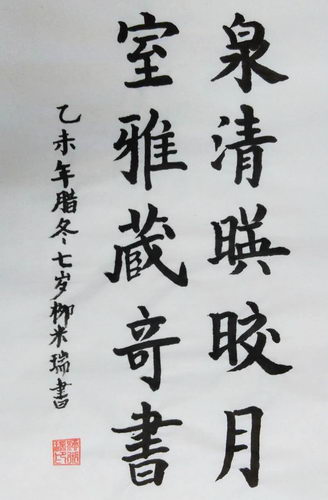 泉清暎晈月
室雅蔵奇書
乙未年腊冬七岁柳米瑞書